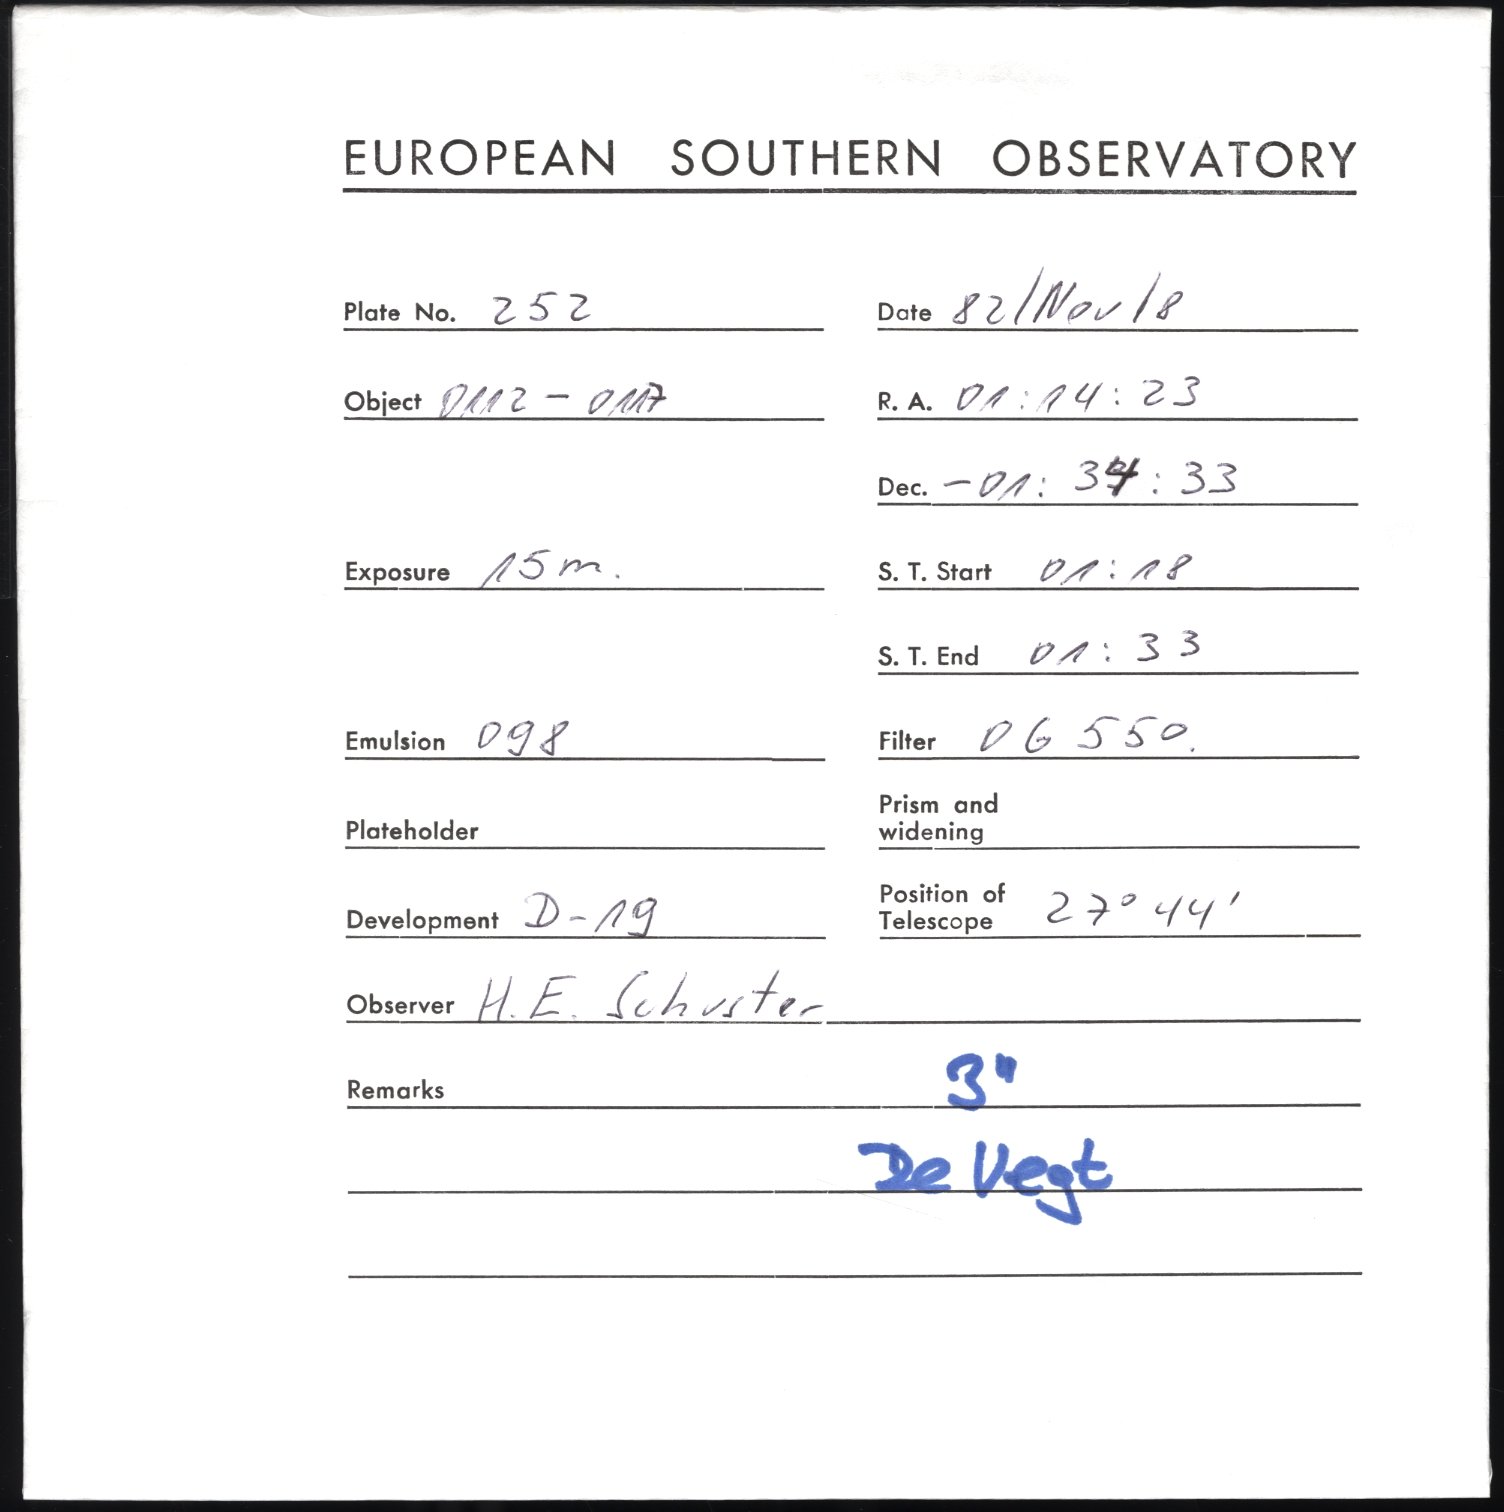 EUROPEAN SOUTHERN OBSERVATORY
Plate No. 252 Date 82/Nov/8
Object 0112-017 R. A. 01:14:23
Dec. -01: 34:33
Exposure 15m. S. T. Start 01:18
S. T. End 01:33
Emulsion 098 Filter OG 550.
Plateholder Prism and
widening
Development D-19 Position of
Telescope 27° 44'
Observer H. E. Schuster
Remarks 3"
De Vegt